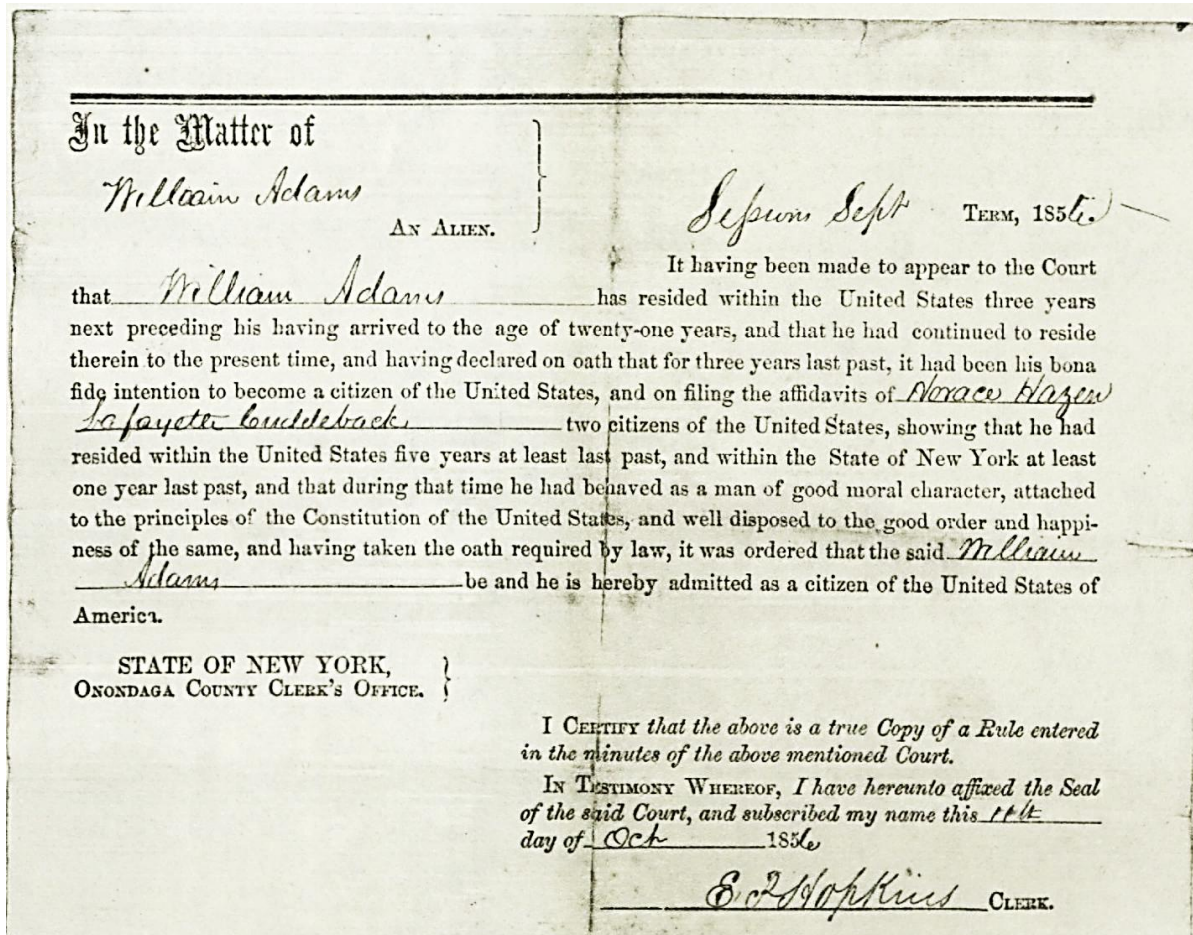 In the Matter of
William Adams
An Alien.
Sessions Sept Term, 1856
It having been made to appear to the Court
that William Adams has resided within the United States three years
next preceding his having arrived to the age of twenty-one years, and that he had continued to reside
therein to the present time, and having declared on oath that for three years last past, it had been his bona
fide intention to become a citizen of the United States, and on filing the affidavits of Horace Hazen
Lafayette Cuddeback two citizens of the United States, showing that he had
resided within the United States five years at least last past, and within the State of New York at least
one year last past, and that during that time he had behaved as a man of good moral character, attached
to the principles of the Constitution of the United States, and well disposed to the good order and happi-
ness of the same, and having taken the oath required by law, it was ordered that the said William
Adams be and he is hereby admitted as a citizen of the United States of
America.
STATE OF NEW YORK,
Onondaga County Clerk's Office.
I Certify that the above is a true Copy of a Rule entered
in the minutes of the above mentioned Court.
In Testimony Whereof, I have hereunto affixed the Seal
of the said Court, and subscribed my name this 11th
day of Oct 1856
E F Hopkins Clerk.